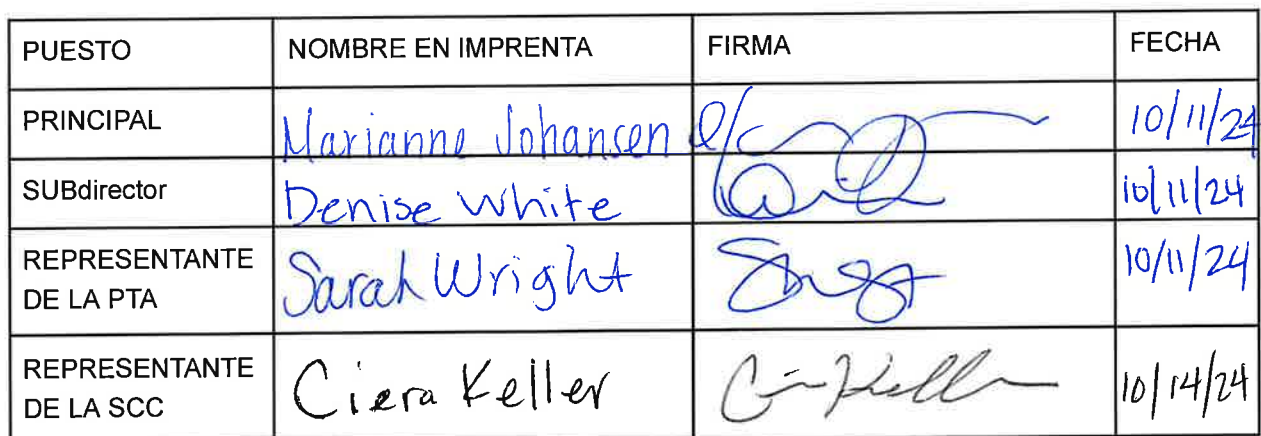 PUESTO NOMBRE EN IMPRENTA FIRMA FECHA
PRINCIPAL Marianne Johansen 10/11/24
SUBdirector Denise White 10/11/24
REPRESENTANTE
DE LA PTA Sarah Wright 10/11/24
REPRESENTANTE
DE LA SCC Ciera Keller 10/14/24